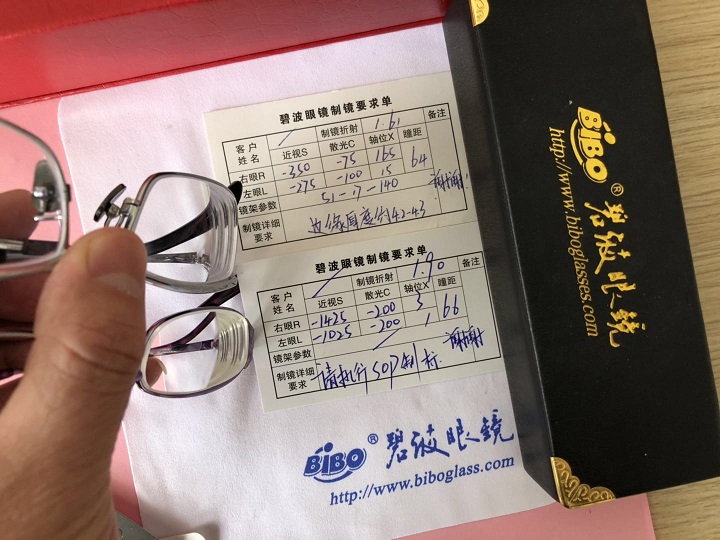 碧波眼镜制镜要求单
客户姓名 近视S 制镜折射 散光C 1.61 轴位X 瞳距 备注
右眼R -350 -75 165 64
左眼L -275 -100 15
镜架参数 51-17-140 谢谢!
制镜详细要求
碧波眼镜制镜要求单
客户姓名 近视S 制镜折射 散光C 1.90 轴位X 瞳距 备注
右眼R -1425 -200 3 66
左眼L -1025 -200 1
镜架参数 谢谢
制镜详细要求
BiBO® 碧波眼镜
http://www.biboglass.com
BiBO® 碧波眼镜
http://www.biboglasses.com